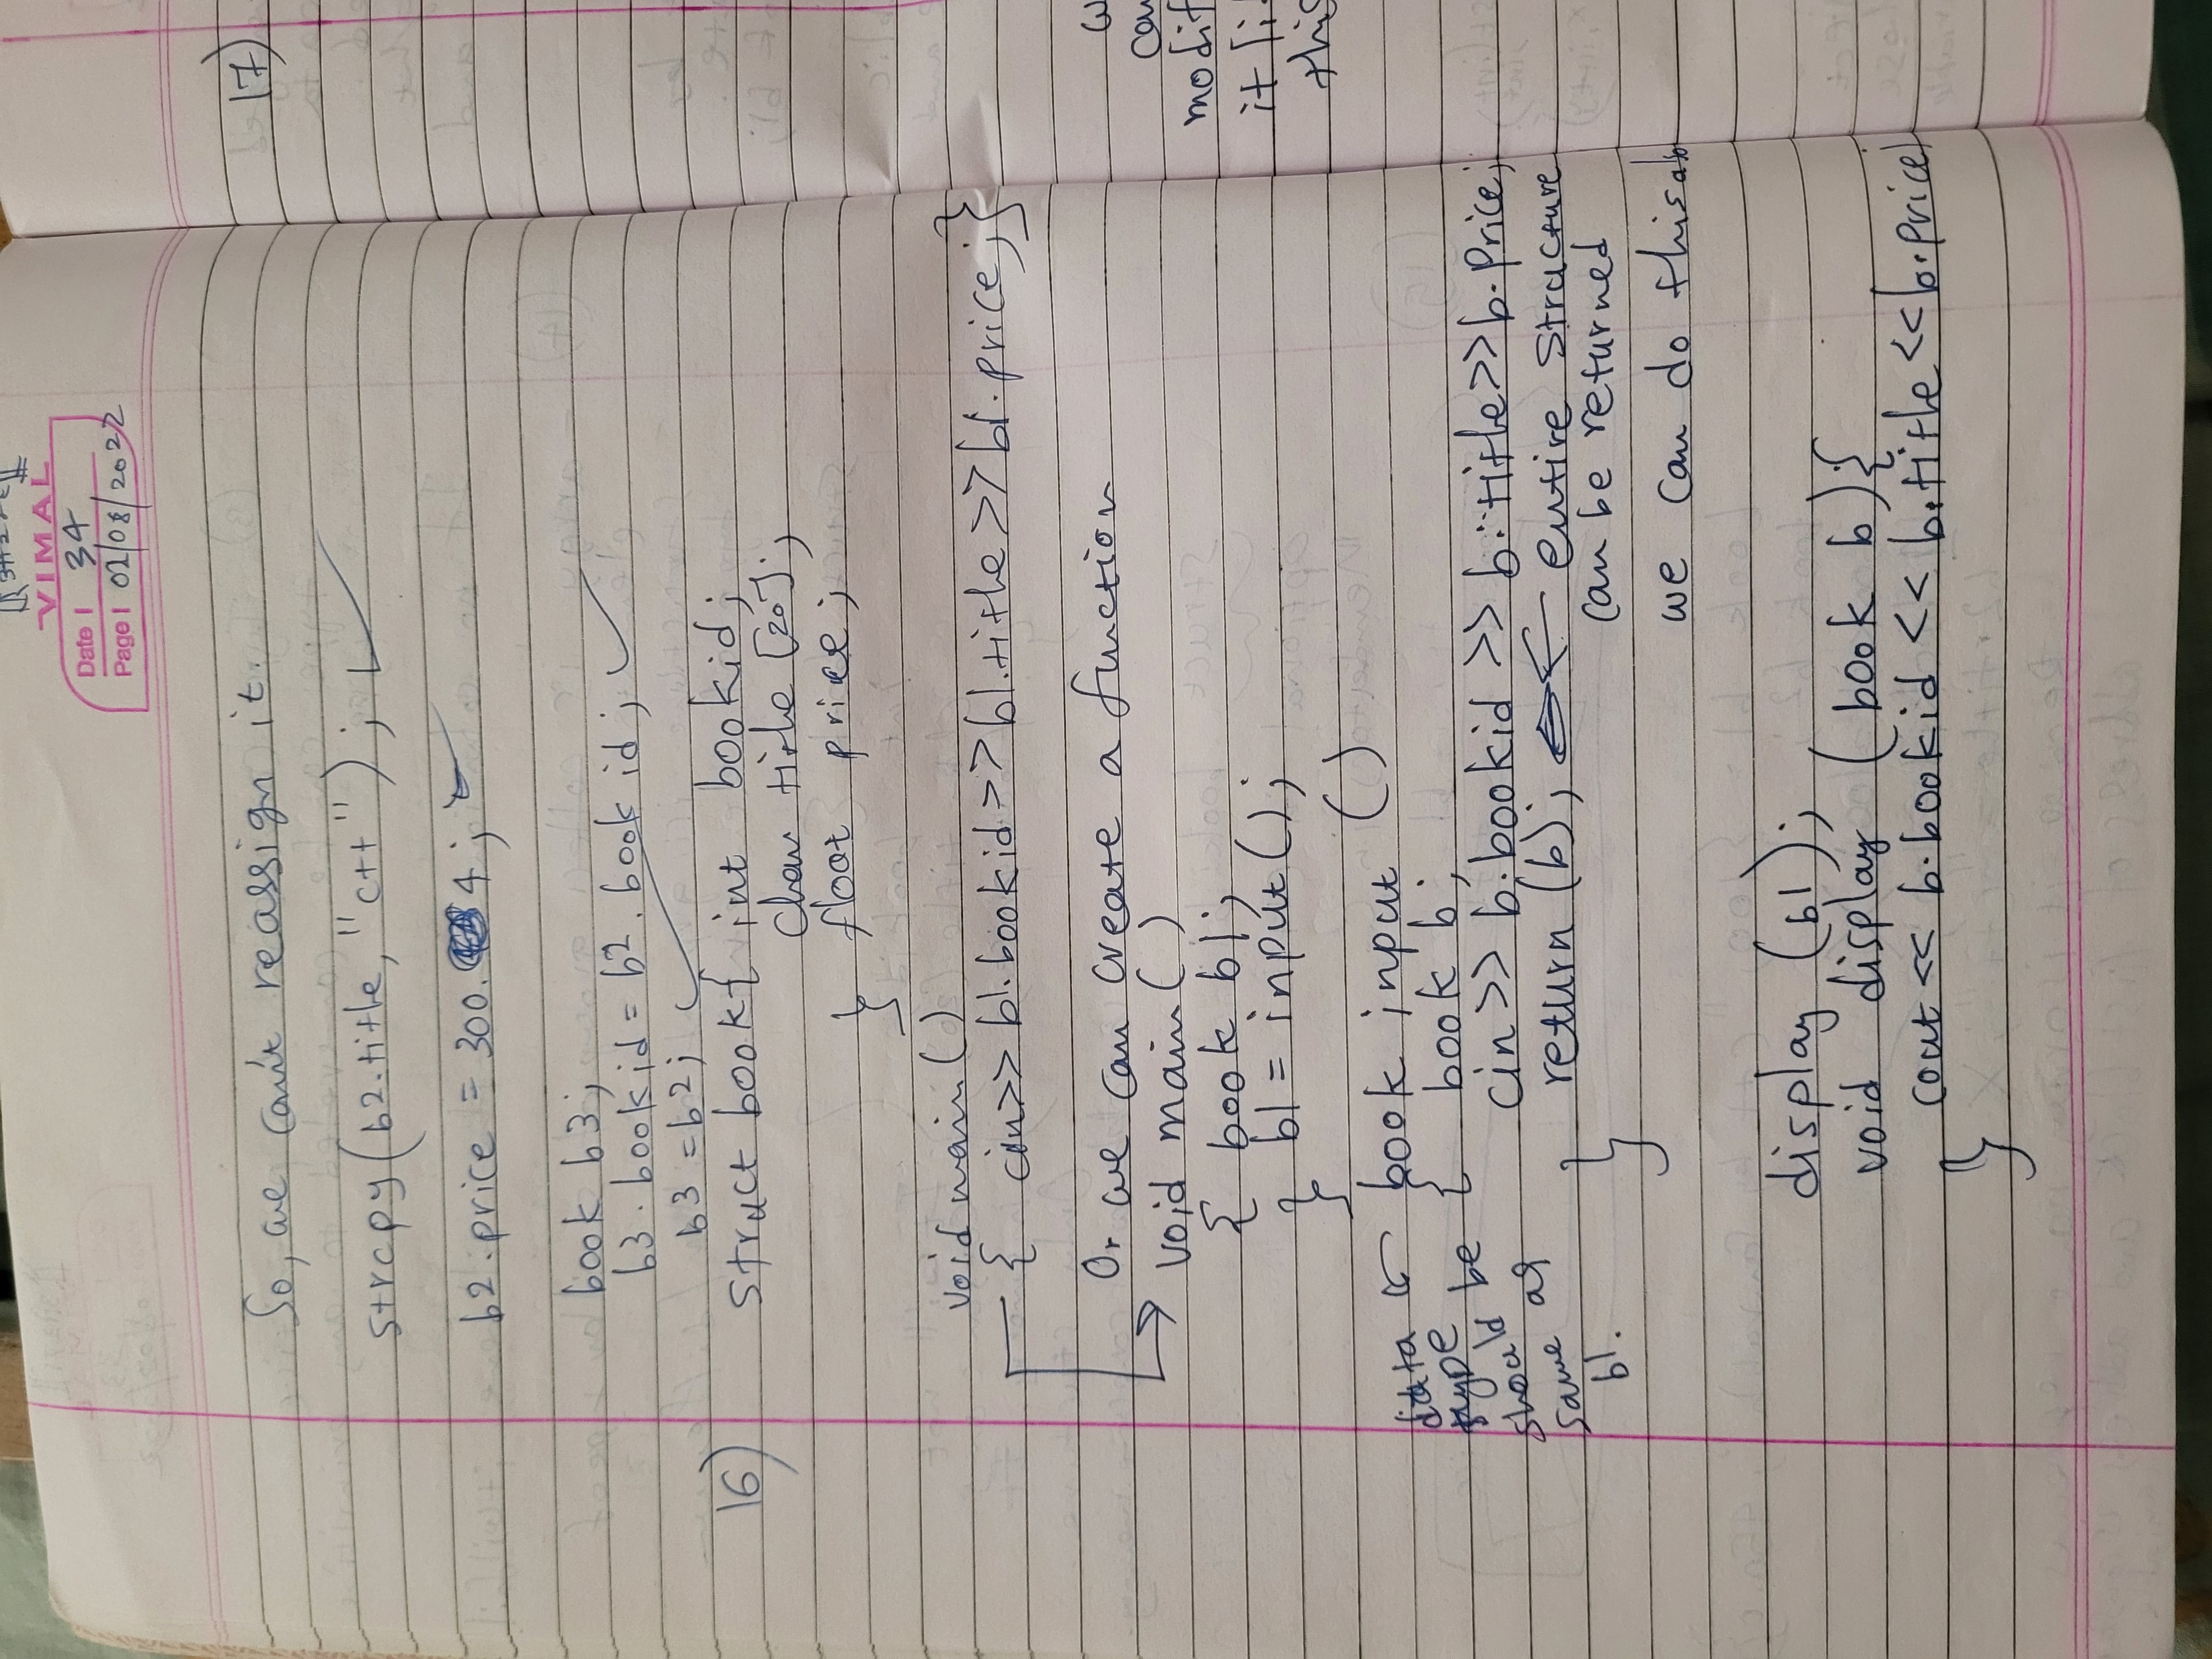 VIMAL
Date 34
Page 01/08/2022
So, we can't reassign it.
strcpy(b2.title, "c++"); ✓
b2.price = 300. 4; ✓
book b3;
b3.bookid = b2.bookid; ✓
b3 = b2; ✓
16) struct book{ int bookid;
char title [20];
float price;
}
void main()
{ cin>> b1.bookid>>b1.title>>b1.price;}
Or we can create a function
void main()
{ book b1;
b1 = input();
}
book input ()
data
type
should be
same as
b1.
{ book b;
cin >> b.bookid >> b.title>>b.price;
return (b); ← entire structure
can be returned
}
we can do this also
display (b1);
void display (book b){
cout << b.bookid << b.title <<b.price;
}
17)
modif
it
this